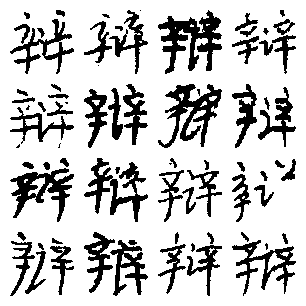 辩辩辩辩
辩辩辩辩
辩辩辩
辩辩辩辩